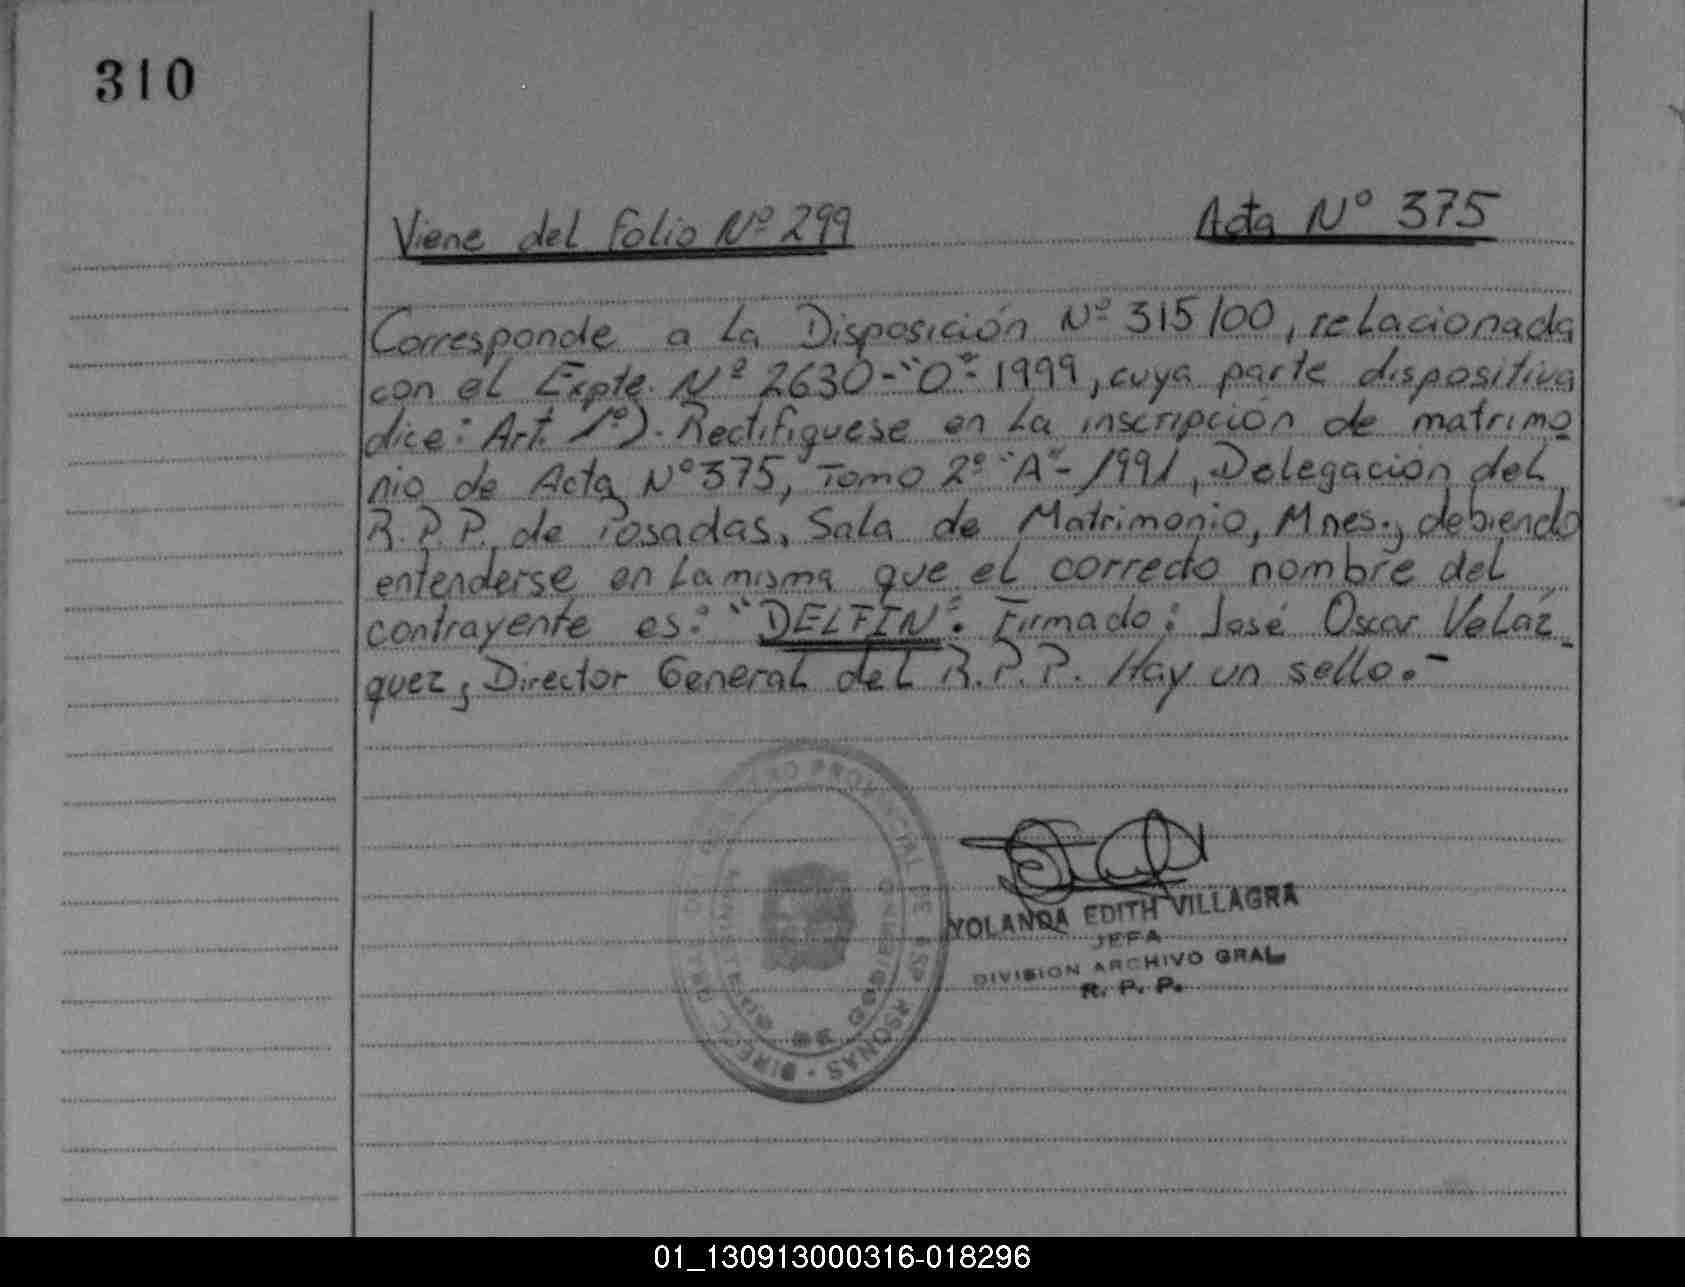 310
Viene del folio Nº 299
Acta Nº 375
Corresponde a la Disposición Nº 315/00, relacionada
con el Expte. Nº 2630-"O"- 1999, cuya parte dispositiva
dice: Art. 1º). Rectifiquese en la inscripción de matrimo
nio de Acta Nº 375, Tomo 2º "A"- 1991, Delegación del
R.P.P. de Posadas, Sala de Matrimonio, Mnes., debiendo
entenderse en la misma que el correcto nombre del
contrayente es: "DELFIN". Firmado: José Oscar Veláz
quez, Director General del R.P.P. Hay un sello.-
YOLANDA EDITH VILLAGRA
JEFA
DIVISION ARCHIVO GRAL
R. P. P.
PROVINCIAL DE
PERSONAS · DIREC
01_130913000316-018296